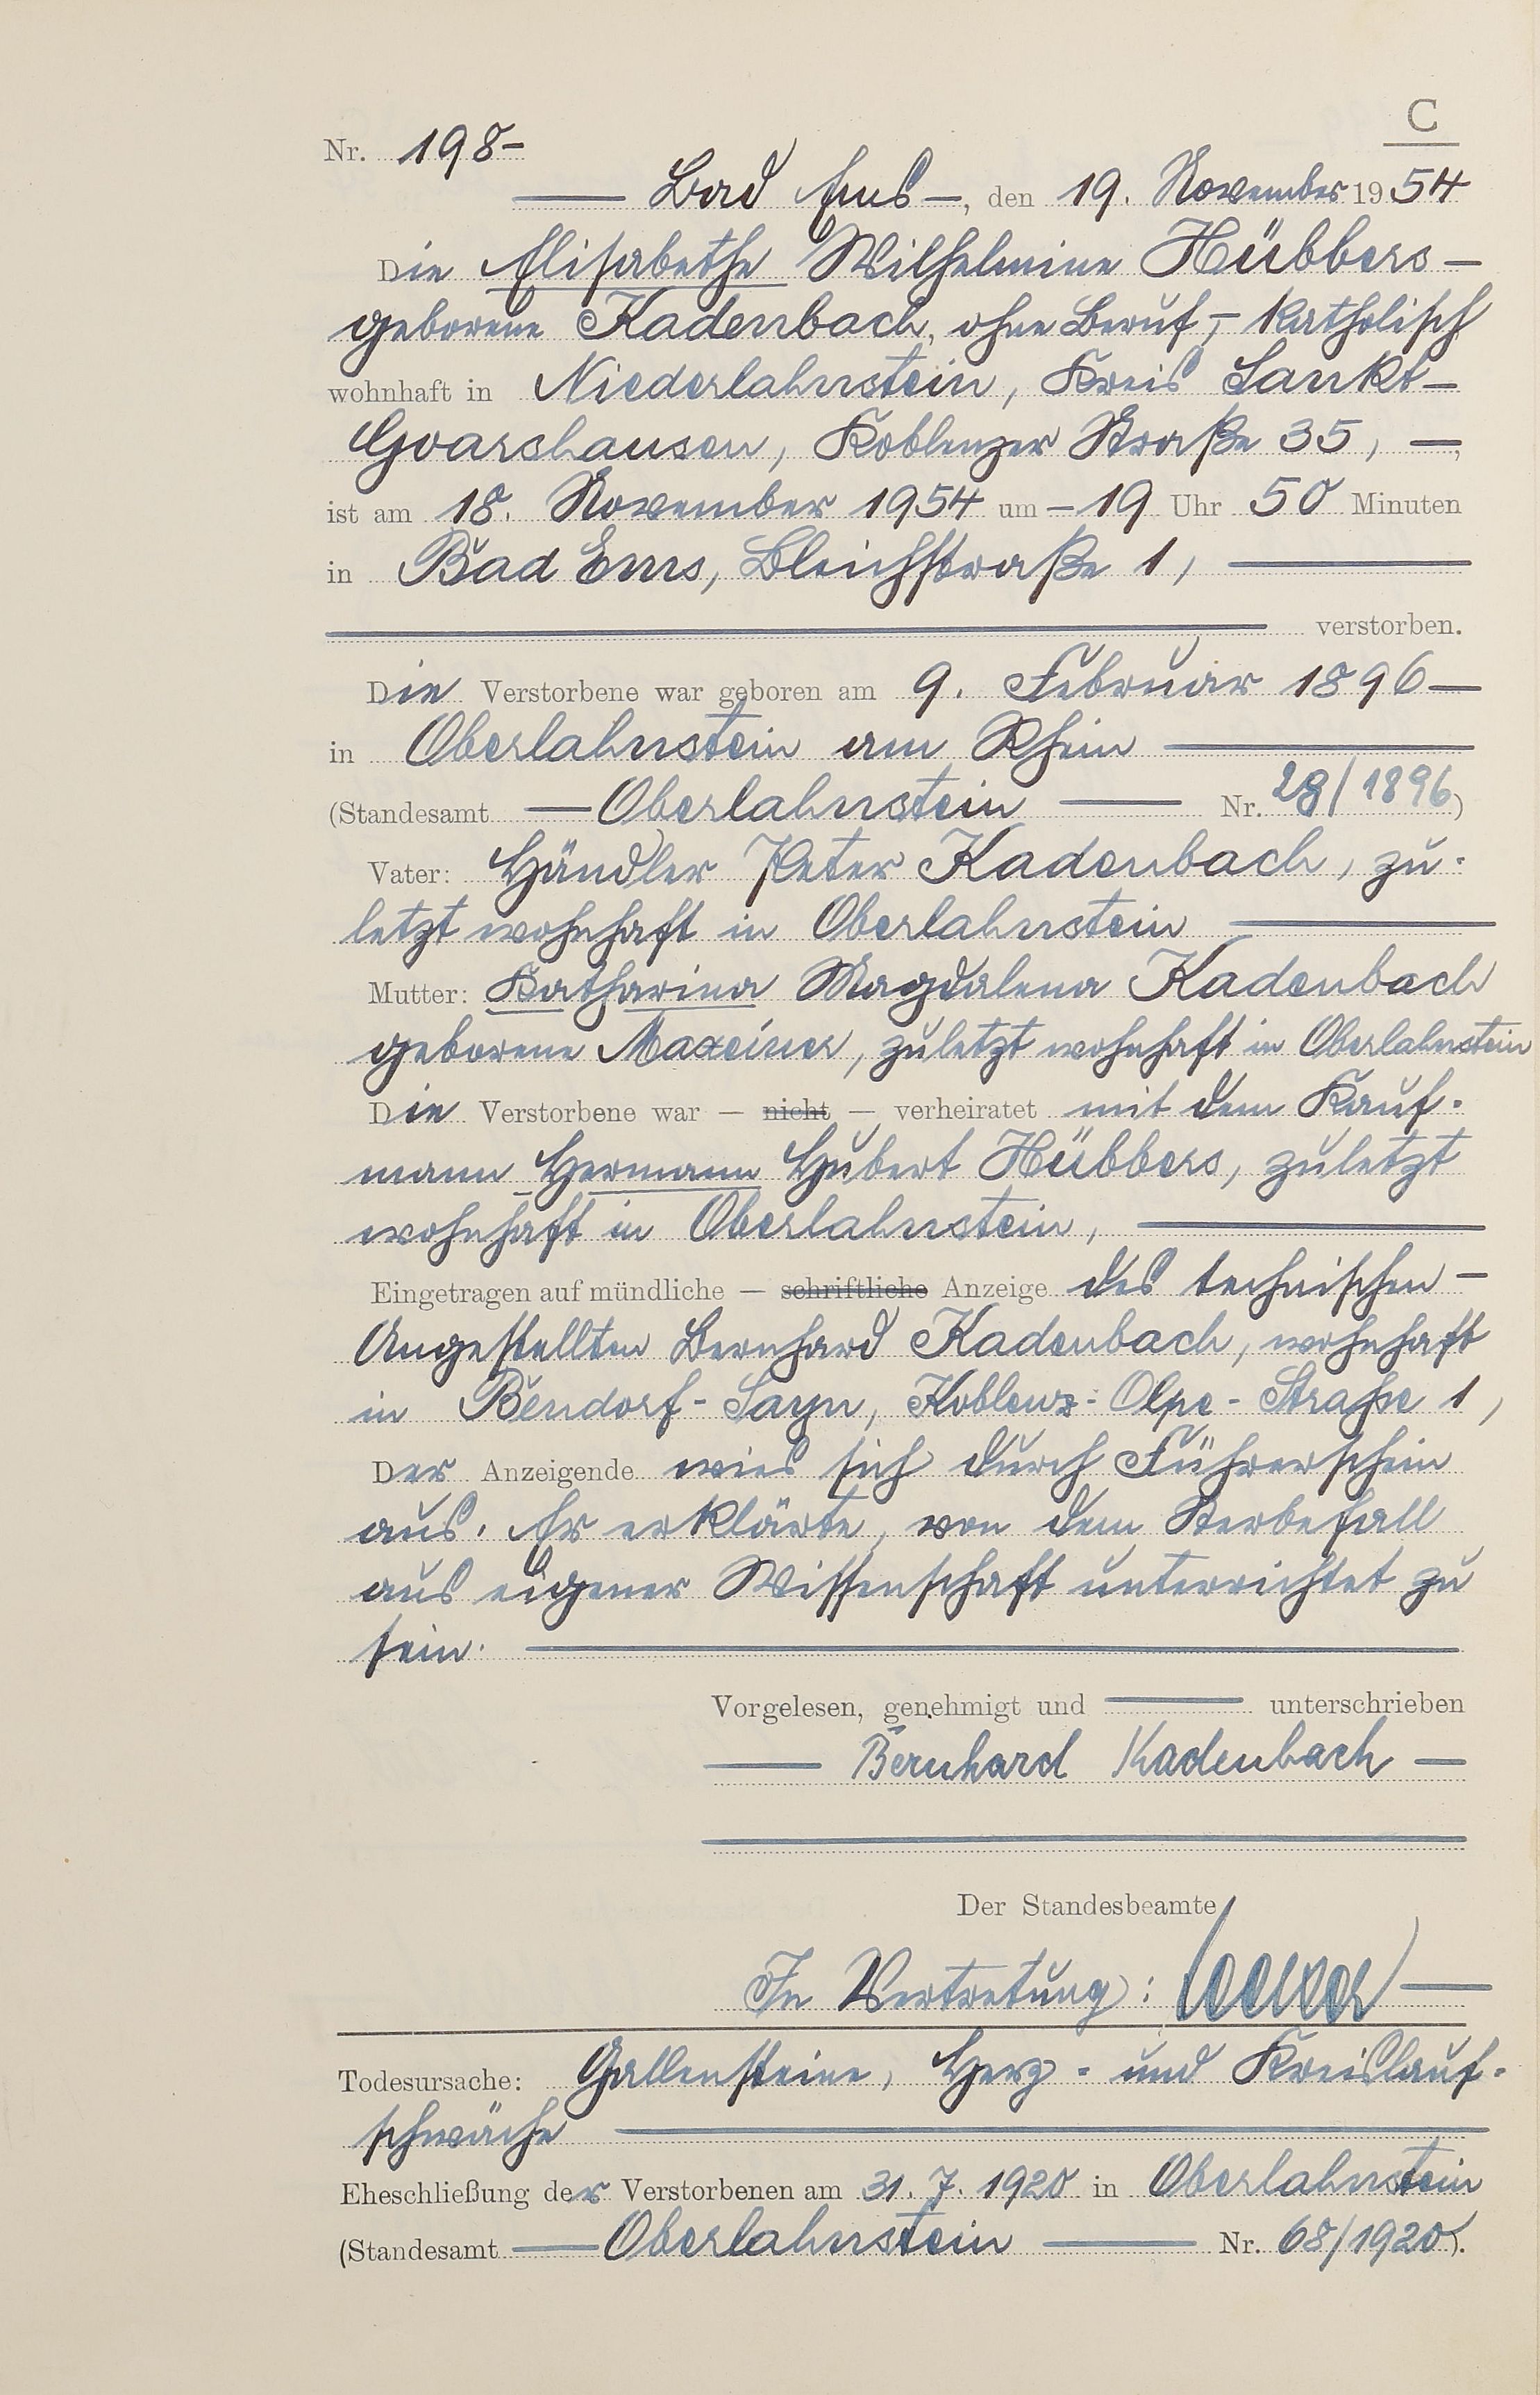 C
Nr. 198-
— Bad Ems —, den 19. November 1954
Die Elisabethe Wilhelmine Hübbers —
geborene Kadenbach, ohne Beruf, — katholisch
wohnhaft in Niederlahnstein, Kreis Sankt —
Goarshausen, Koblenzer Straße 35, —,
ist am 18. November 1954 um — 19 Uhr 50 Minuten
in Bad Ems, Bleichstraße 1, —
— verstorben.
Die Verstorbene war geboren am 9. Februar 1896 —
in Oberlahnstein am Rhein —
(Standesamt — Oberlahnstein — Nr. 28/1896)
Vater: Händler Peter Kadenbach, zu-
letzt wohnhaft in Oberlahnstein —
Mutter: Katharina Magdalena Kadenbach
geborene Maxeiner, zuletzt wohnhaft in Oberlahnstein
Die Verstorbene war — nicht — verheiratet mit dem Kauf-
mann Hermann Hubert Hübbers, zuletzt
wohnhaft in Oberlahnstein, —
Eingetragen auf mündliche — schriftliche Anzeige des technischen —
Angestellten Bernhard Kadenbach, wohnhaft
in Bendorf-Sayn, Koblenz-Olpe-Straße 1,
Der Anzeigende wies sich durch Führerschein
aus. Er erklärte, von dem Sterbefall
aus eigener Wissenschaft unterrichtet zu
sein. —
Vorgelesen, genehmigt und — unterschrieben
— Bernhard Kadenbach —
Der Standesbeamte
In Vertretung: —
Todesursache: Gallensteine, Herz- und Kreislauf-
schwäche —
Eheschließung der Verstorbenen am 31. 7. 1920 in Oberlahnstein
(Standesamt — Oberlahnstein — Nr. 68/1920).